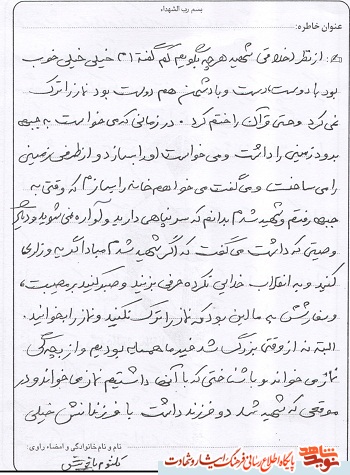 بسم رب الشهداء
عنوان خاطره:
از نظر اخلاقی شهید هر چه بگویم کم گفته ام خیلی خیلی خوب
بود با دوست دوست و با دشمن هم دوست بود نماز را ترک
نمی کرد و حتی قرآن را ختم کرد. در زمانی که می خواست به جبهه
برود زمینی را داشت و می خواست او را بسازد و از طرفی زمینی
را می ساخت و می گفت می خواهم خانه را بسازم که وقتی به
جبهه رفتم و شهید شدم بدانم که سرپناهی دارید و آواره نمی شوید و دیگر
وصیتی که داشت می گفت که اگر شهید شدم مبادا گریه و زاری
کنید و به انقلاب خدایی نکرده حرفی بزنید و صبر کنید بر مصیبت،
و سفارشش به ما این بود که نماز را ترک نکنید و نماز را بخوانید.
البته نه از وقتی بزرگ شد خیر ما همسایه بودیم و از بچگی
نماز می خواند و با شناختی که با آنها داشتیم نماز می خواند و در
موقعی که شهید شد دو فرزند داشت با فرزندانش خیلی
نام و نام خانوادگی و امضاء راوی:
کلثوم
نوید شاهد
پایگاه اطلاع رسانی فرهنگ ایثار و شهادت